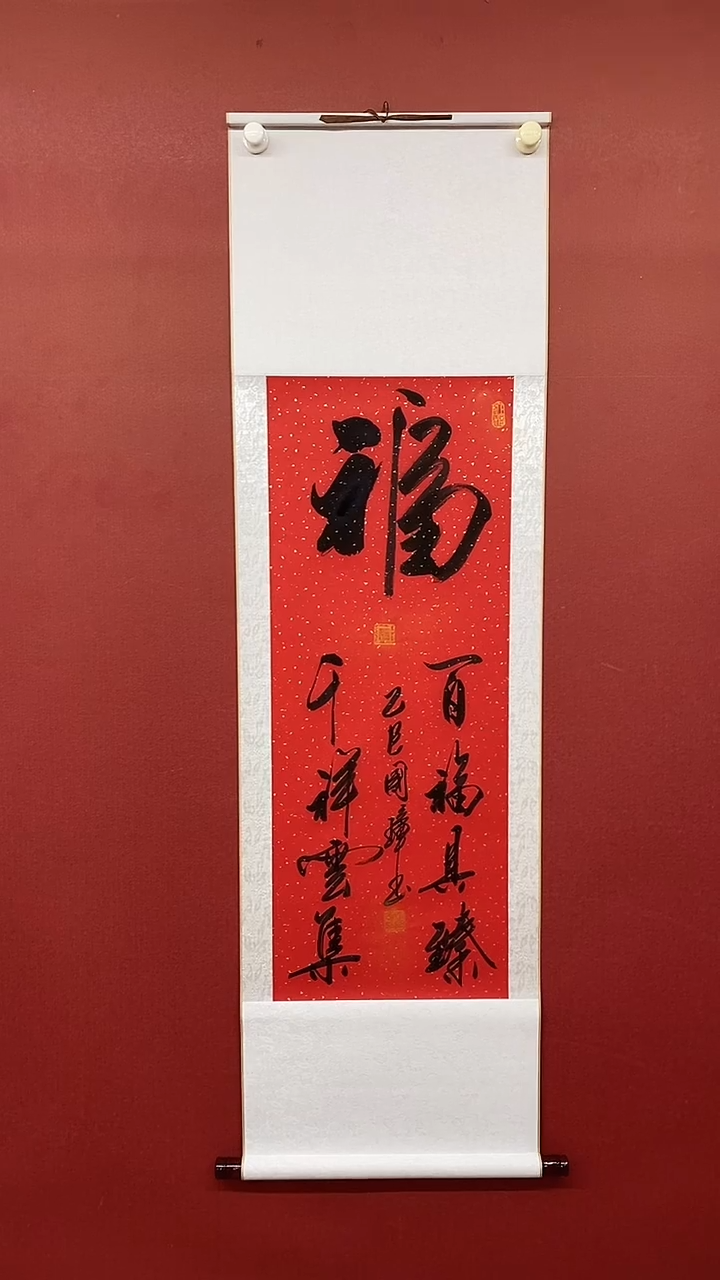 福
百福具臻
千祥雲集
乙巳國璋书